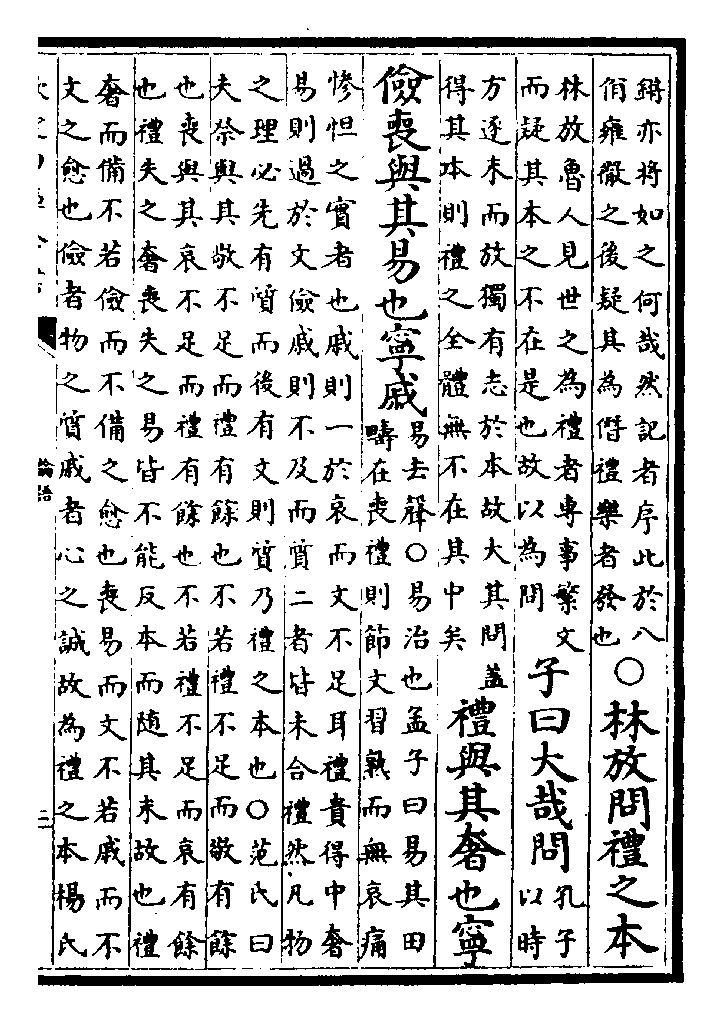 鏘亦將如之何哉然記者序此於八
佾雍徹之後疑其為僭禮樂者發也
○林放問禮之本
林放魯人見世之為禮者專事繁文
而疑其本之不在是也故以為問
子曰大哉問
孔子
以時
方逐末而放獨有志於本故大其問蓋
得其本則禮之全體無不在其中矣
禮與其奢也寧
儉喪與其易也寧戚
易去聲○易治也孟子曰易其田
疇在喪禮則節文習熟而無哀痛
慘怛之實者也戚則一於哀而文不足耳禮貴得中奢
易則過於文儉戚則不及而質二者皆未合禮然凡物
之理必先有質而後有文則質乃禮之本也○范氏曰
夫祭與其敬不足而禮有餘也不若禮不足而敬有餘
也喪與其哀不足而禮有餘也不若禮不足而哀有餘
也禮失之奢喪失之易皆不能反本而隨其末故也禮
奢而備不若儉而不備之愈也喪易而文不若戚而不
文之愈也儉者物之質戚者心之誠故為禮之本楊氏
論語
二